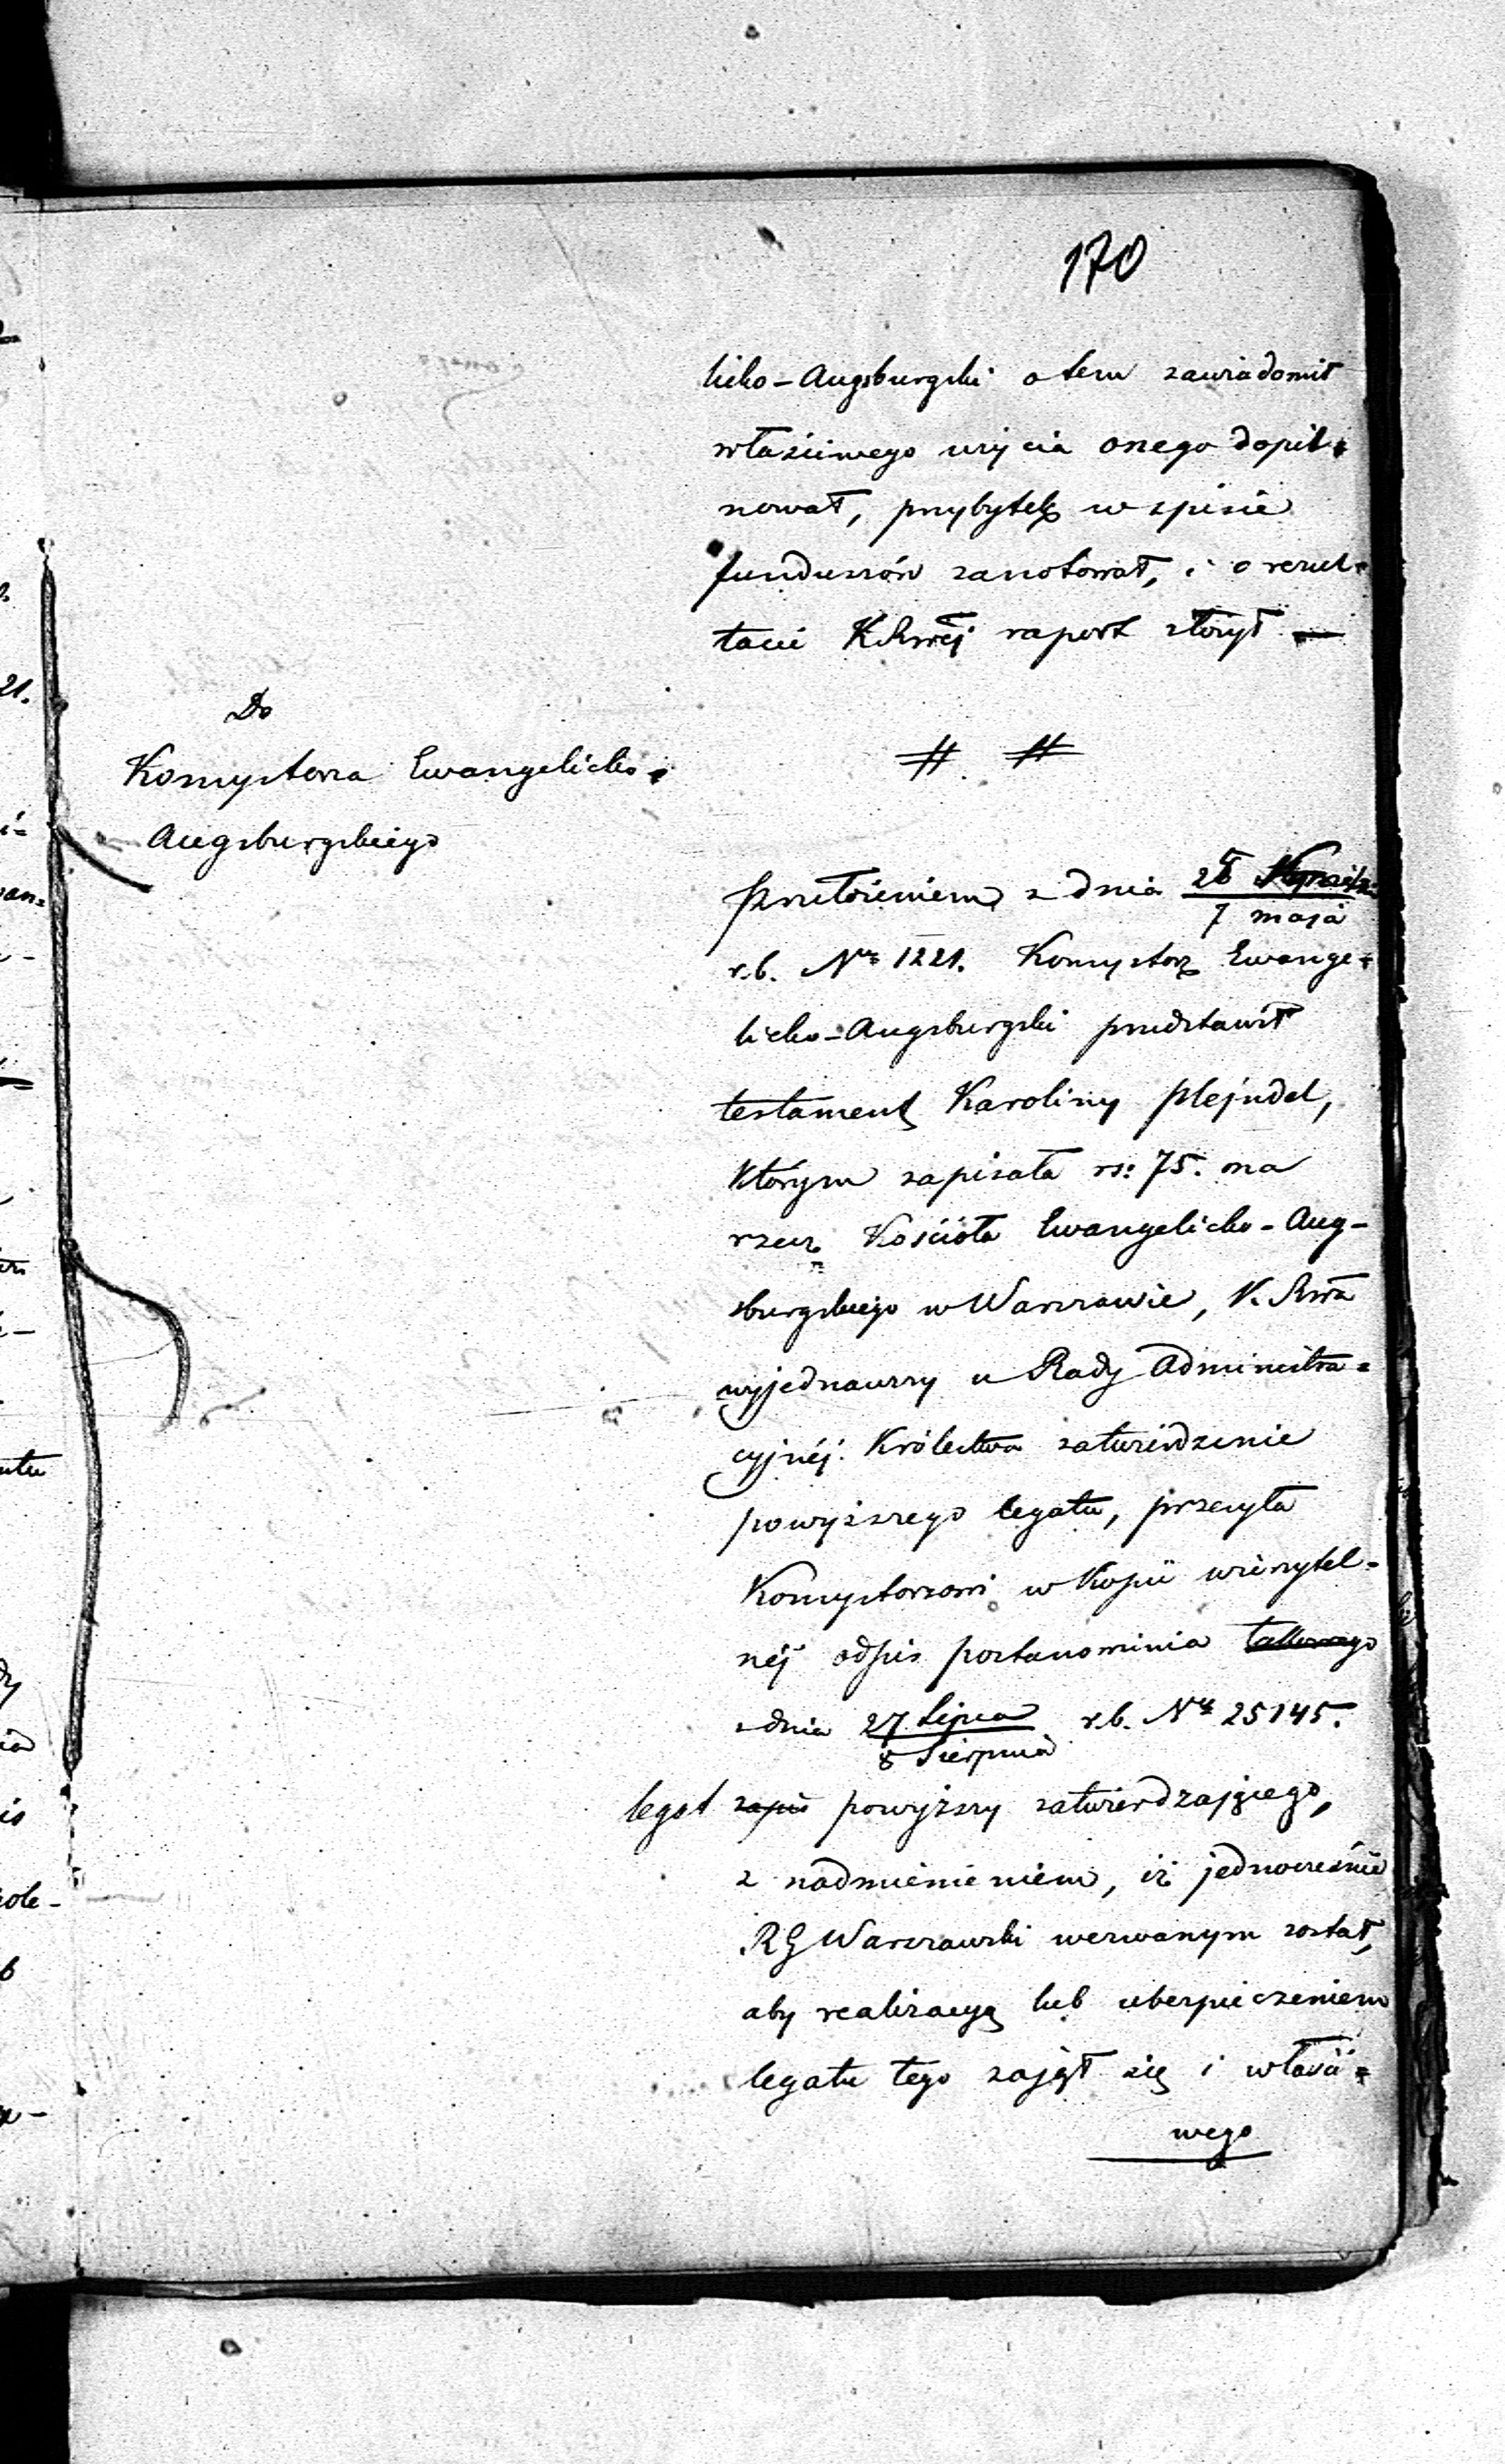 170
licko-Augsburgski o tem zawiadomił
właściwego użycia onego dopil=
nował, przybytek w spisie
funduszów zanotował, i o rezul=
tacie KRwéj raport złożył —
Do
Konsystorza Ewangelicko=
Augsburgskiego
Przełożeniem z dnia 25 / 7 maja
r.b. Nr 1221. Konsystorz Ewange=
licko-Augsburgski przedstawił
testament Karoliny Plejndel,
którym zapisała rs: 75. na
rzecz Kościoła Ewangelicko-Aug-
sburgskiego w Warszawie, K. Rwa
wyjednawszy u Rady Administra=
cyjnéj Królestwa zatwierdzenie
powyższego legatu, przesyła
Konsystorzowi w kopii wierzytel=
néj odpis postanowienia
z dnia 27 Lipca / 8 Sierpnia r.b. Nr 25145.
legat zapis powyższy zatwierdzającego,
z nadmienieniem, iż jednocześnie
RG Warszawski wezwanym został,
aby realizacyą lub ubezpieczeniem
legatu tego zajął się i właści=
wego